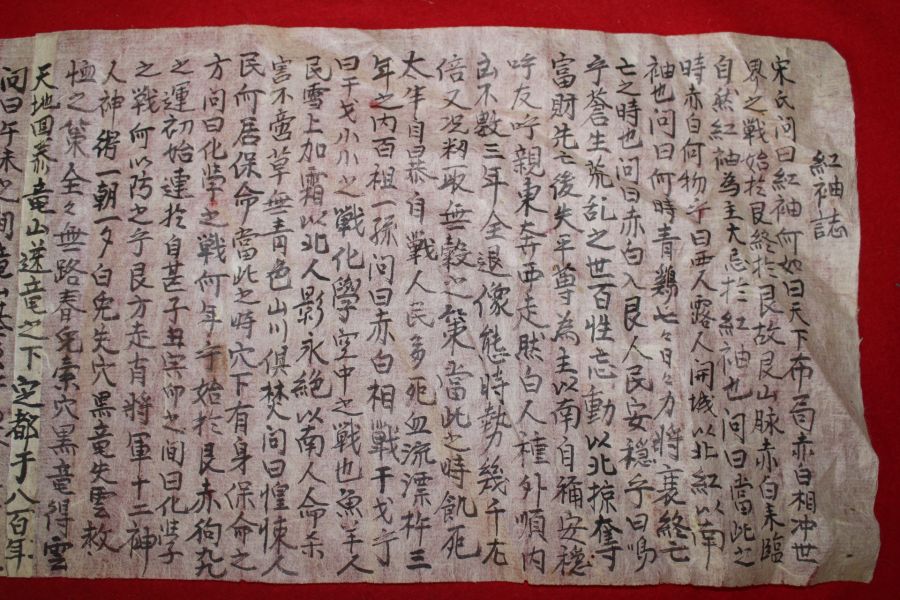 紅袖誌
宋氏問曰紅袖何如曰天下布局赤白相冲世
界之戰始於艮終於艮故艮山脉赤白来臨
自然紅袖為主大忌於紅袖也問曰當此之
時赤白何物乎曰西人露人開城以北紅以南
袖也問曰何時青鷄七々日々力將衰終亡
亡之時也問曰赤白入艮人民安穏乎曰嗚
乎蒼生荒乱之世百性忘動以北掠奪
富財先亡後失平等為主以南自稱安穏
呼友呼親東奔西走然白人種外順内
出不數三年全退像態時勢幾千尤
倍又况籾取無穀之策當此之時飢死
太半自暴自戰人民多死血流漂杵三
年之内百祖一孫問曰赤白相戰干戈乎
曰干戈小小之戰化學空中之戰也魚羊人
民雪上加霜以北人影永絶以南人命杀
害不啻草無青色山川俱焚問曰惶悚人
民何居保命當此之時穴下有身保命之
方問曰化學之戰何年乎始於艮赤狗
之運初始連於自甚子丑寅卯之間曰化学
之戰何以防之乎艮方走肖將軍十二神
人神術一朝一夕白兎失穴黑竜失雲救
恤之策全々無路春兎索穴黑竜得雲
天地回泰竜山逆竜之下定都于八百年
問曰午未之間